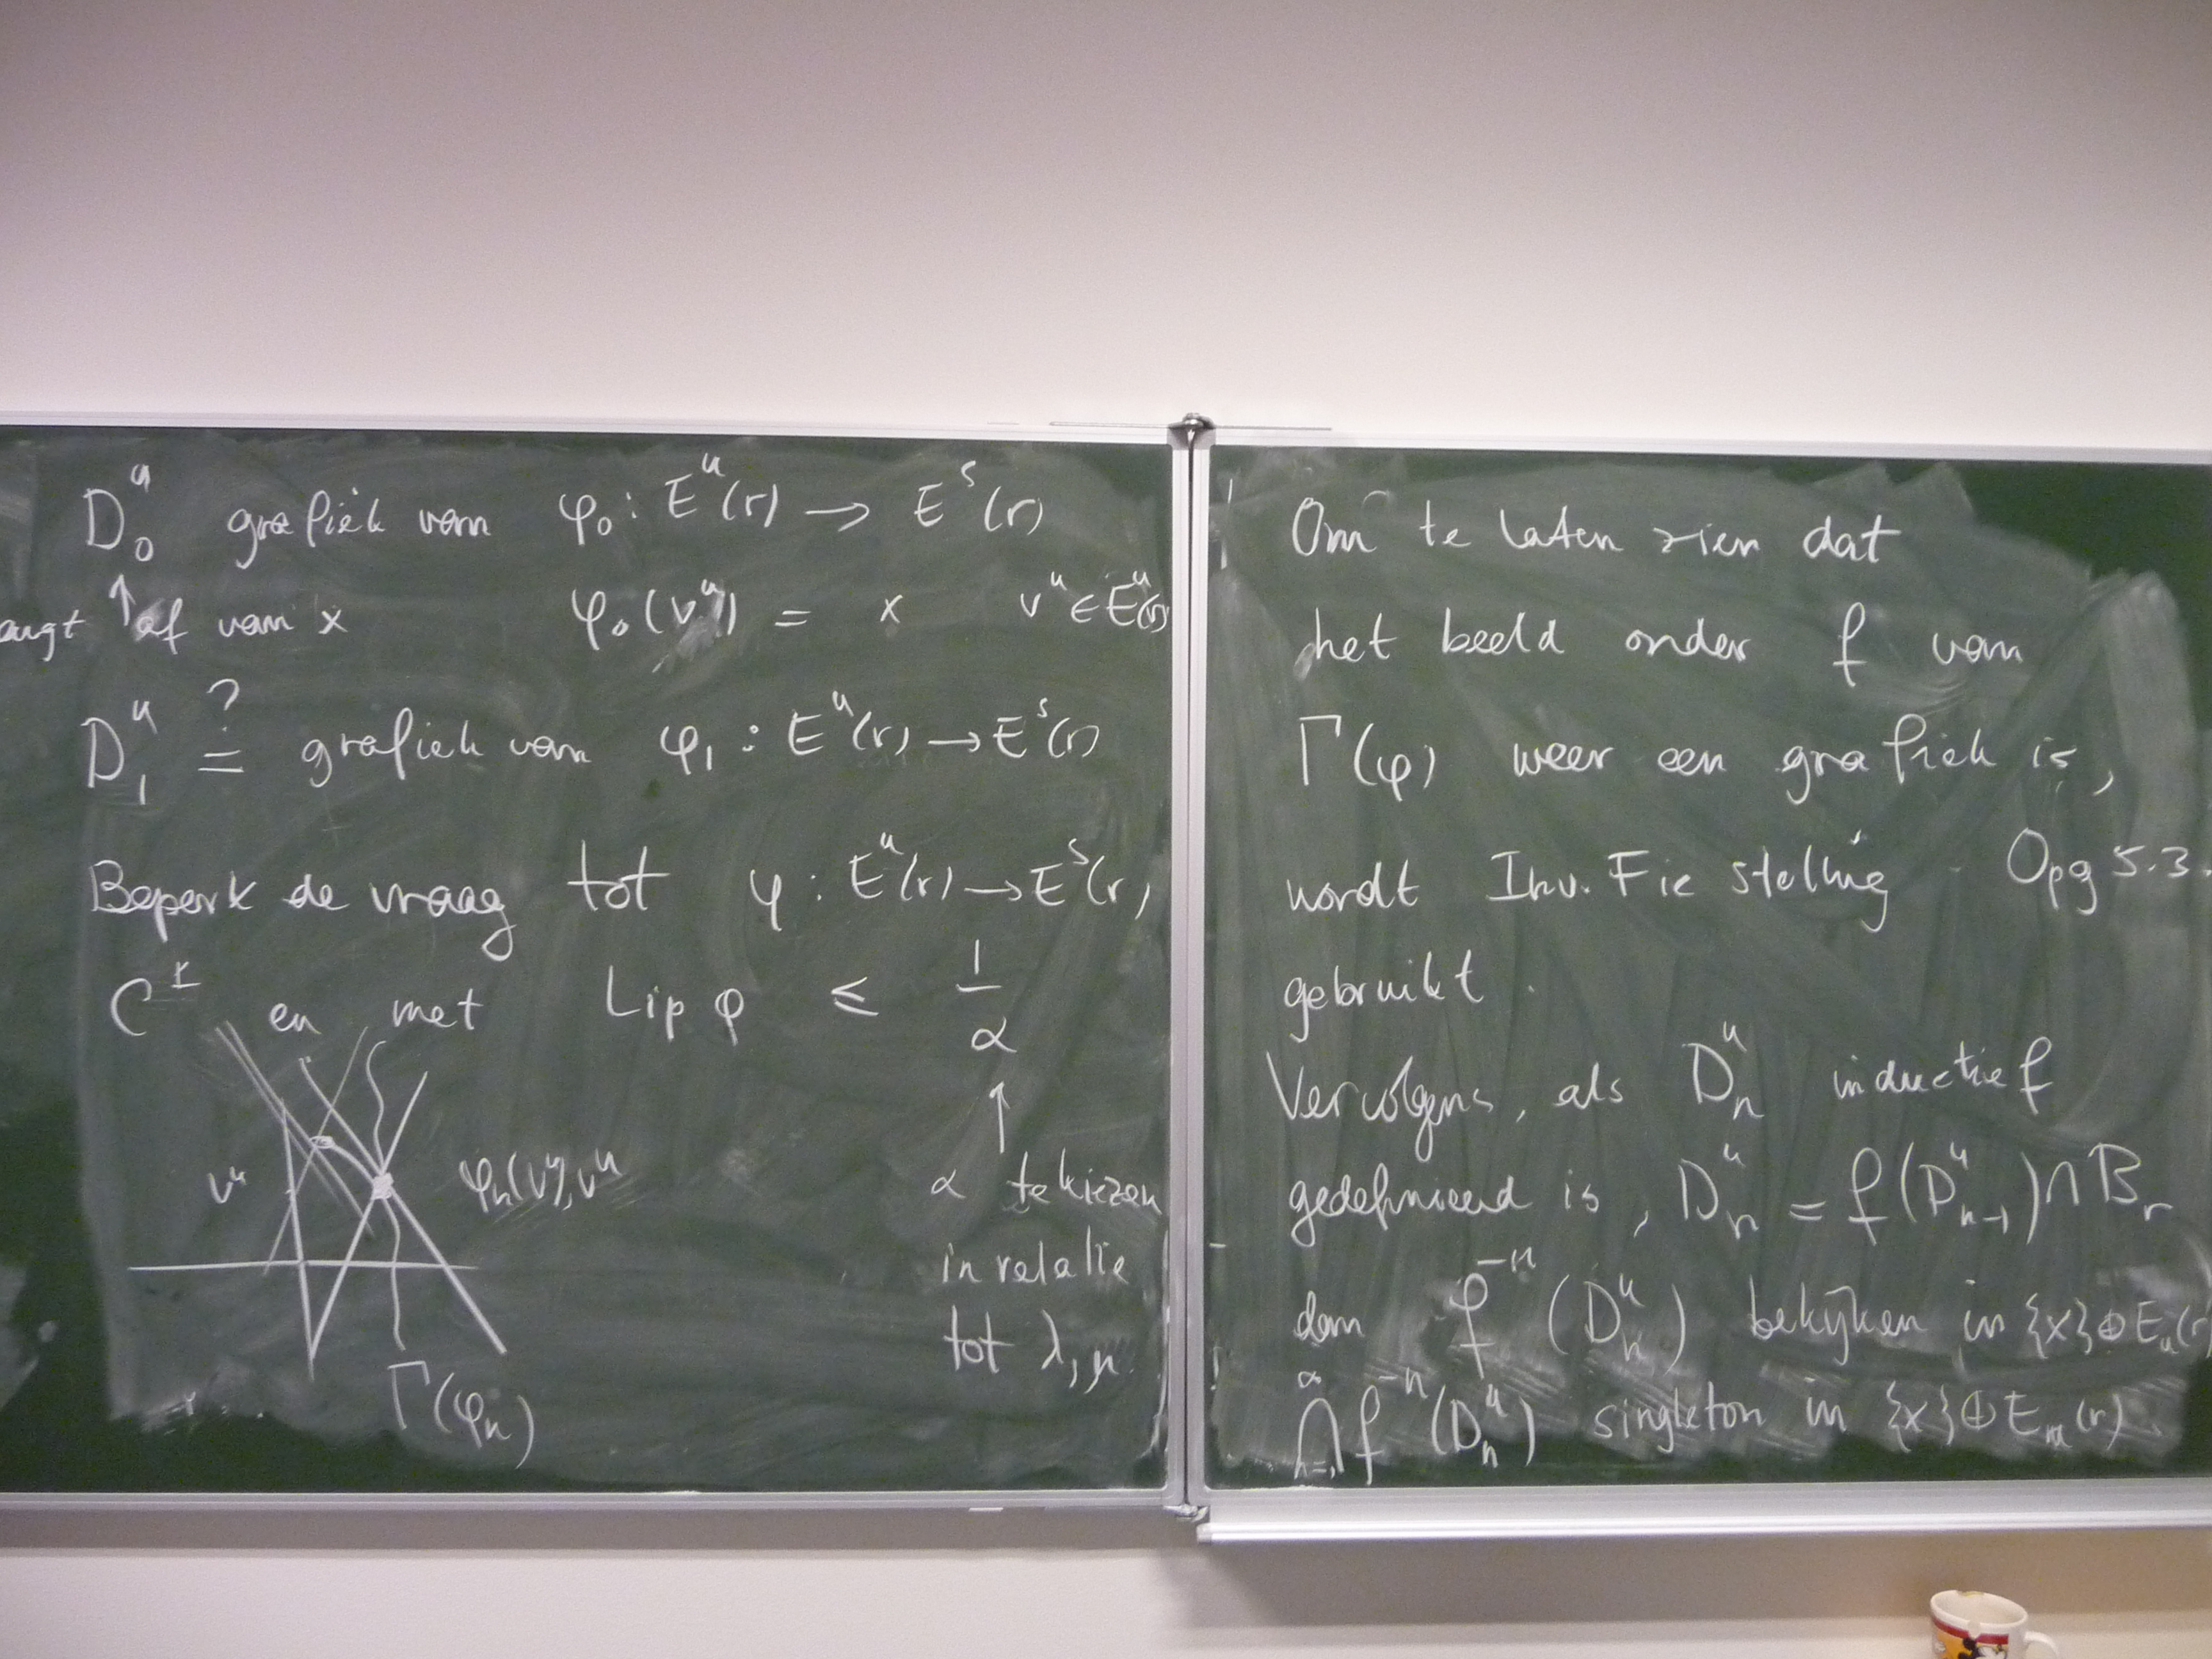 D₀ᵘ grafiek van φ₀ : Eᵘ(r) → Eˢ(r)
↑ af van x φ₀(vᵘ) = x vᵘ ∈ Eᵘ(r)
D₁ᵘ ≟ grafiek van φ₁ : Eᵘ(r) → Eˢ(r)
Beperk de vraag tot φ : Eᵘ(r) → Eˢ(r)
C¹ en met Lip φ ≤ 1/α
↑
vᵘ φₙ(vᵘ), vᵘ
α te kiezen
in relatie
tot λ, μ
Γ(φₙ)
Om te laten zien dat
het beeld onder f van
Γ(φ) weer een grafiek is,
wordt Inv. Fie stelling - Opg 5.3.
gebruikt.
Vervolgens, als Dₙᵘ inductief
gedefinieerd is, Dₙᵘ = f(Dₙ₋₁ᵘ) ∩ Bᵣ
dan f⁻ⁿ(Dₙᵘ) bekijken in {x} ⊕ Eᵤ(r)
∞
⋂ f⁻ⁿ(Dₙᵘ) singleton in {x} ⊕ Eᵤ(r).
n=1